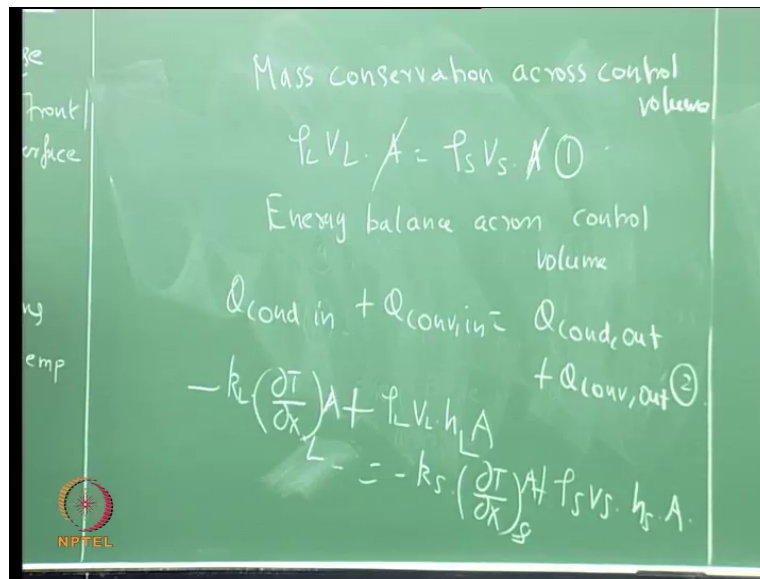 Front
Mass conservation across control
volume
ρL VL . A = ρs Vs . A ①
Energy balance across control
volume
Qcond in + Qconv,in = Qcond,out
+ Qconv,out ②.
emp
- kL (∂T/∂x)L A + ρL VL . hL A
= - ks . (∂T/∂x)s A + ρs Vs . hs . A .
NPTEL